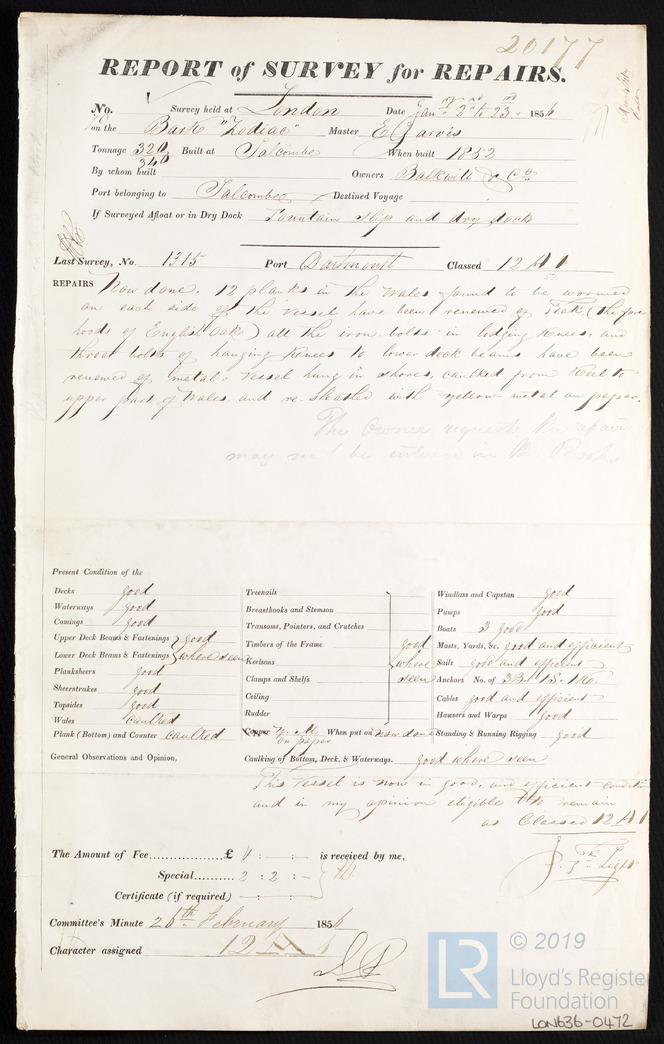 20177
REPORT of SURVEY for REPAIRS.
No. Survey held at London Date Jany 2nd to 23rd 1856
on the Bark "Zodiac" Master E Jarvis
Tonnage 320 Built at Salcombe When built 1852
340
By whom built Owners Balkwill & Co
Port belonging to Salcombe Destined Voyage
If Surveyed Afloat or in Dry Dock Fountain Slip and dry dock
Last Survey, No. 1315 Port Dartmouth Classed 12 A 1
REPAIRS Now done. 12 planks in the Wales found to be wormed
on each side of the Vessel have been renewed of Teak (the fore
hoods of English Oak) all the iron bolts in lodging Knees, and
throat bolts of hanging Knees to lower deck beams have been
renewed of metal. Vessel hung in shores, caulked from Keel to
upper part of Wales and re-sheathed with yellow metal on paper.
The Owner requests the repairs
may not be entered in the Book
Present Condition of the
Decks good
Waterways good
Comings good
Upper Deck Beams & Fastenings good
Lower Deck Beams & Fastenings where seen
Planksheers good
Sheerstrakes good
Topsides good
Wales caulked
Plank (Bottom) and Counter caulked
Treenails
Breasthooks and Stemson
Transoms, Pointers, and Crutches
Timbers of the Frame good
Keelsons where
Clamps and Shelfs seen
Ceiling
Rudder
Copper Y. M. When put on now done
on paper
Windlass and Capstan good
Pumps good
Boats 3 good
Masts, Yards, &c. good and efficient
Sails good and efficient
Anchors No. of 3B. 1S. 1K.
Cables good and efficient
Hawsers and Warps good
Standing & Running Rigging good
General Observations and Opinion, Caulking of Bottom, Deck, & Waterways. good where seen
This Vessel is now in good, and efficient condition
and in my opinion eligible to remain
as Classed 12 A 1
The Amount of Fee £ : : is received by me,
Special 2 : 2 : -
Certificate (if required) : :
Committee's Minute 26th February 1856
Character assigned 12 A 1
© 2019
LR
Lloyd's Register
Foundation
LON636-0472